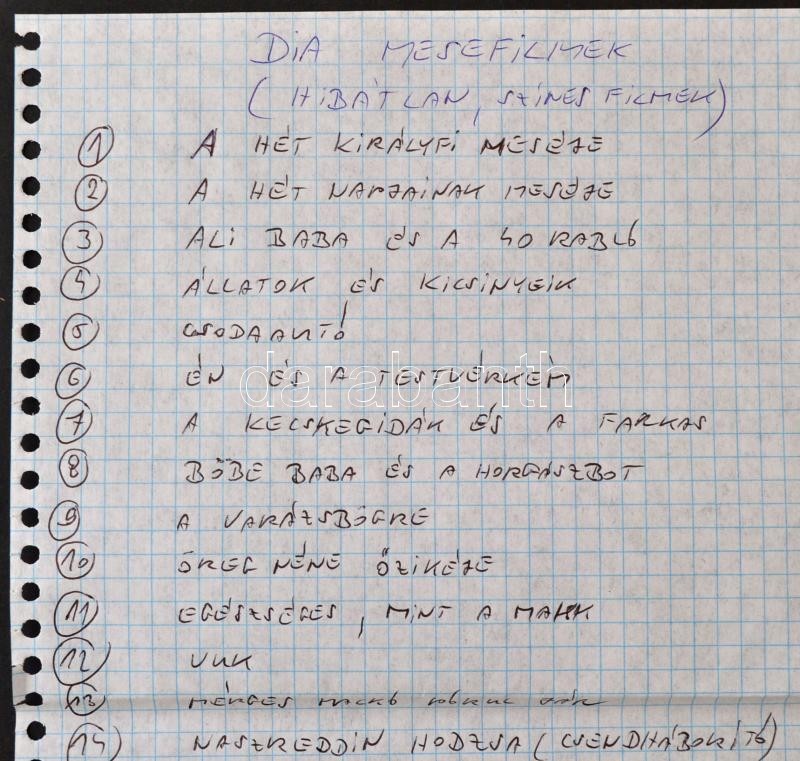 DIA MESEFILMEK
(HIBÁTLAN, SZÍNES FILMEK)
1 A HÉT KIRÁLYFI MESÉJE
2 A HÉT NAPJAINAK MESÉJE
3 ALI BABA ÉS A 40 RABLÓ
4 ÁLLATOK ÉS KICSINYEIK
5 CSODAAUTÓ
6 ÉN ÉS A TESTVÉRKÉM
darabanth
7 A KECSKEGIDÁK ÉS A FARKAS
8 BÖBE BABA ÉS A HORGÁSZBOT
9 A VARÁZSBÖGRE
10 ÖREG NÉNE ŐZIKÉJE
11 EGÉSZSÉGES, MINT A MAKK
12 VUK
13 MÉRGES
14) NASZREDDIN HODZSA (CSENDHÁBORÍTÓ)